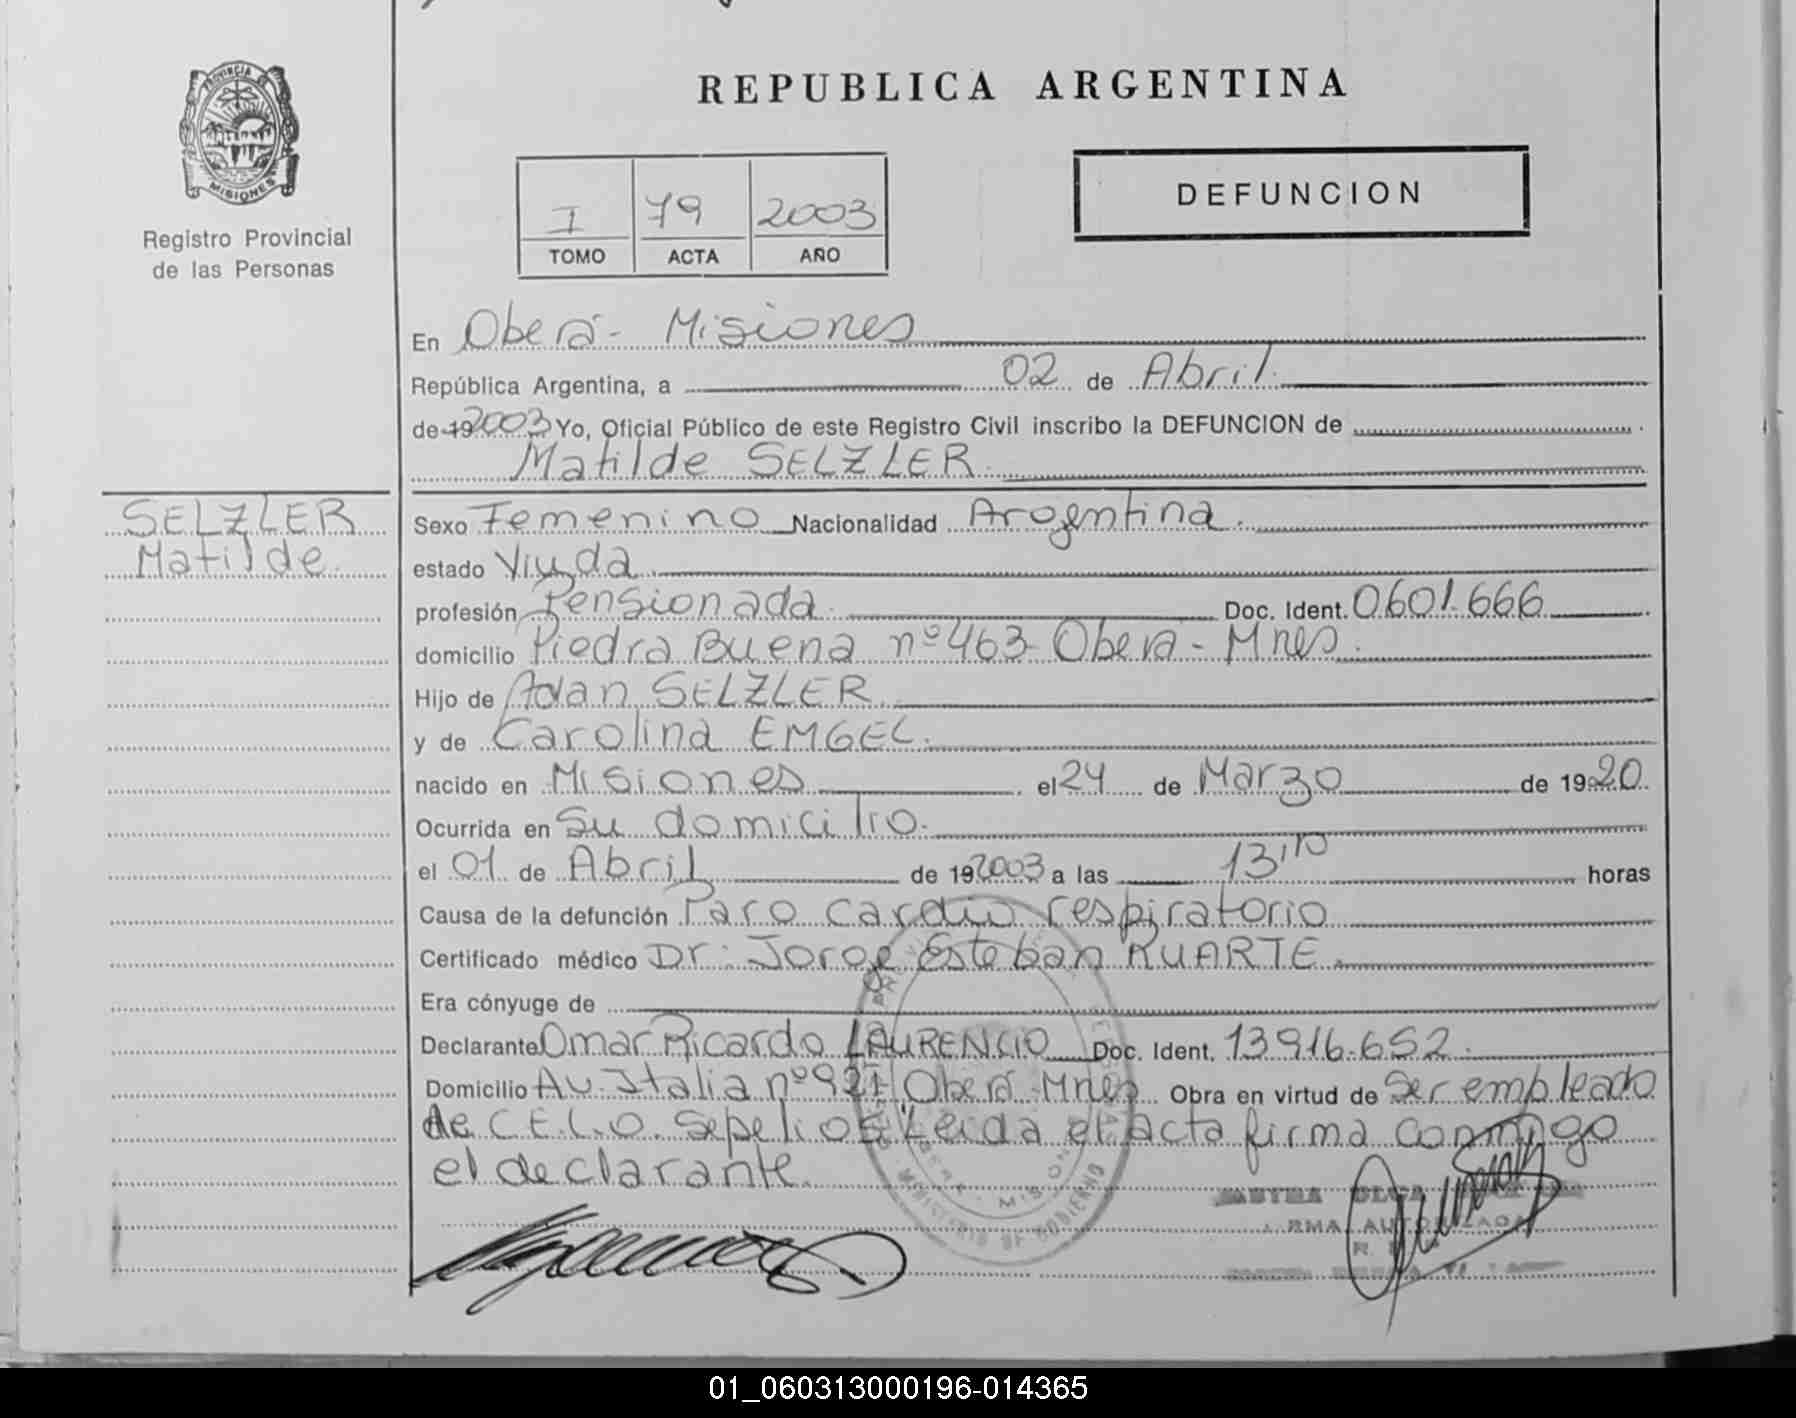 PROVINCIA
MISIONES
Registro Provincial
de las Personas
REPUBLICA ARGENTINA
I 79 2003
TOMO ACTA AÑO
DEFUNCION
En Oberá - Misiones
República Argentina, a 02 de Abril
de 19 2003 Yo, Oficial Público de este Registro Civil inscribo la DEFUNCION de
Matilde SELZLER
SELZLER
Matilde
Sexo Femenino Nacionalidad Argentina
estado Viuda
profesión Pensionada Doc. Ident. 0601.666
domicilio Piedra Buena nº 463 Oberá - Mnes.
Hijo de Adan SELZLER
y de Carolina EMGEL
nacido en Misiones el 24 de Marzo de 19 20
Ocurrida en Su domicilio
el 01 de Abril de 19 2003 a las 13,10 horas
Causa de la defunción Paro cardio respiratorio
Certificado médico Dr. Jorge Esteban RUARTE
Era cónyuge de
Declarante Omar Ricardo LAURENCIO Doc. Ident. 13916.652
Domicilio Av. Italia nº 921 Oberá Mnes Obra en virtud de Ser empleado
de C.E.L.O. Sepelios Leida el acta firma conmigo
el declarante.
AUTORIZADA
01_060313000196-014365